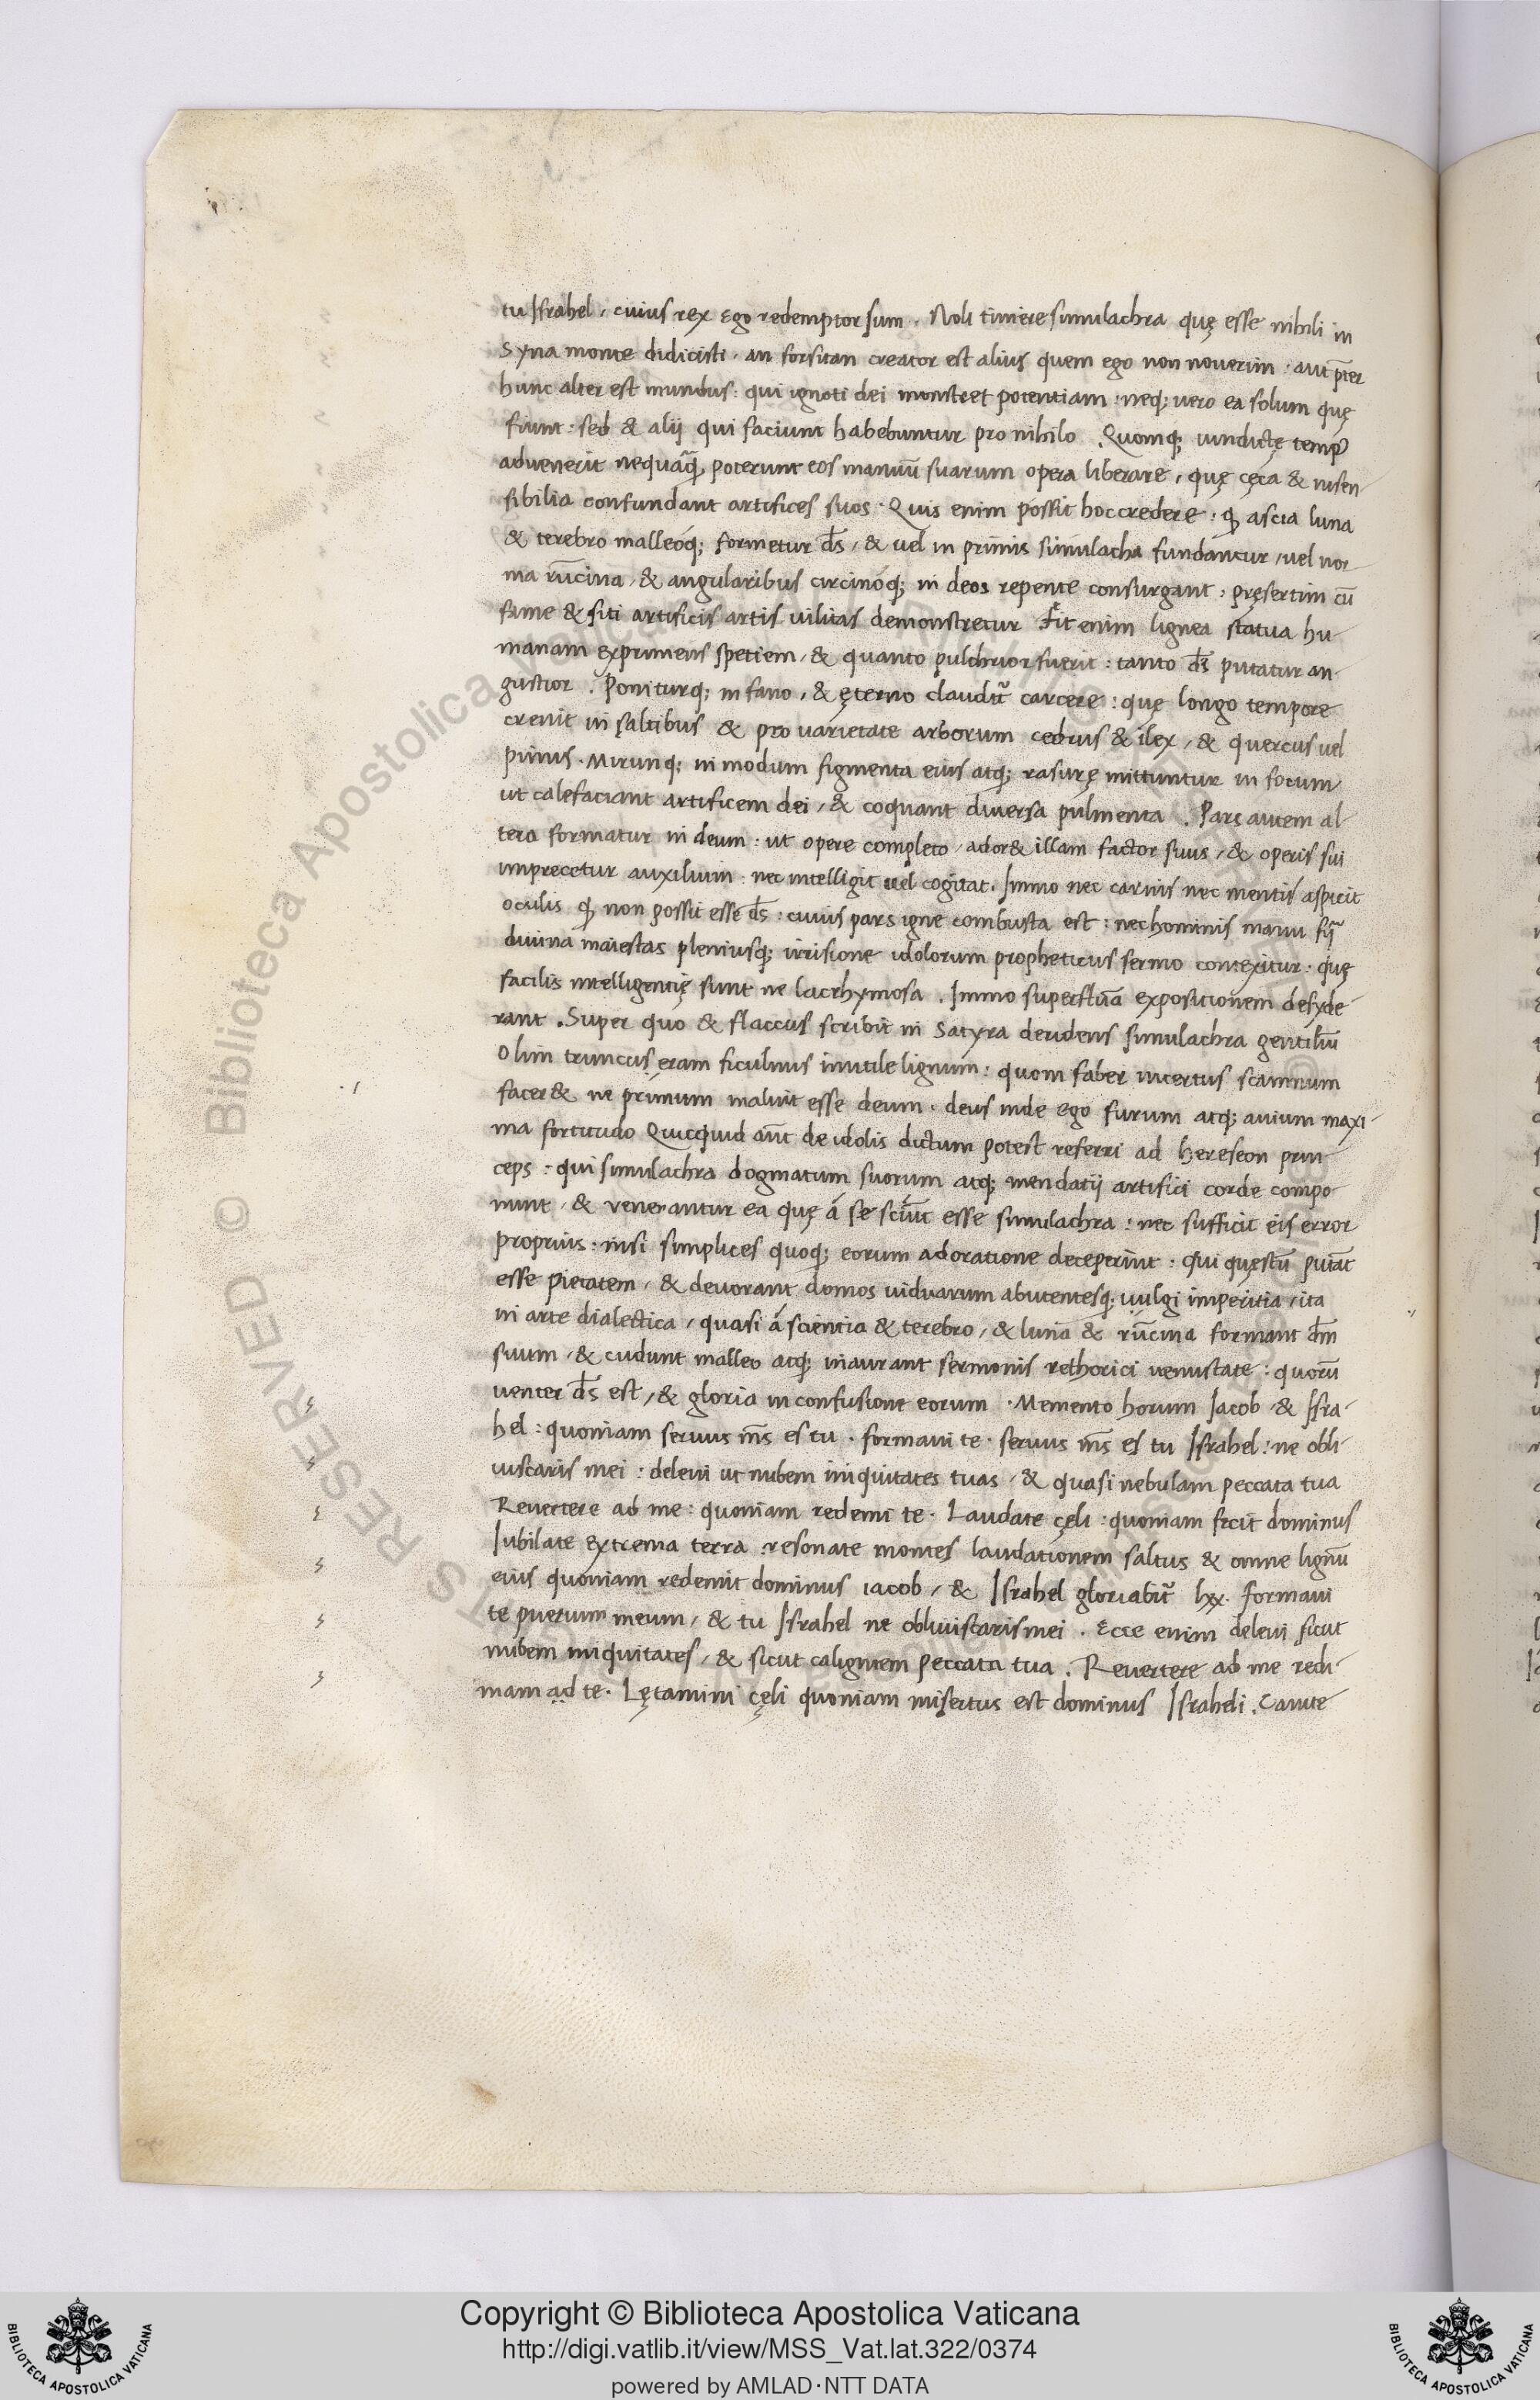 tu Israhel, cuius rex ego redemptor sum. Noli timere simulachra quę esse nihili in
Syna monte didicisti, an forsitan creator est alius quem ego non noverim: aut p̄ter
hunc alter est mundus: qui ignoti dei monstret potentiam: neq; vero ea solum quę
fiunt: sed & alij qui faciunt habebuntur pro nihilo. Quomq; vindictę temp9
advenerit nequaq̃, poterunt eos manuū suarum opera liberare, quę cęca & insen-
sibilia confundant artifices suos. Quis enim possit hoc credere: ꝙ ascia luna
& terebro malleoq; formetur d̄s, & vel in primis simulacha fundantur, vel nor-
ma rūcina, & angularibus circinoq; in deos repente consurgant: pręsertim cū
fame & siti artificis artis vilitas demonstretur Fit enim lignea statua hu-
manam exprimens spetiem, & quanto pulchrior fuerit: tanto d̄s putatur an-
gustior. Poniturq; in fano, & ęterno claudit̃ carcere: quę longo tempore
crevit in saltibus & pro varietate arborum cedrus & ilex, & quercus vel
pinus. Mirunq; in modum figmenta eius atq; rasurę mittuntur in focum
ut calefaciant artificem dei, & coquant diversa pulmenta. Pars autem al-
tera formatur in deum: ut opere completo, ador& illam factor suus, & operis sui
imprecetur auxilium: nec intelligit vel cogitat. Immo nec carnis nec mentis aspicit
oculis ꝙ non possit esse d̄s: cuius pars igne combusta est: nec hominis manu
divina maiestas pleniusq; irrisione idolorum propheticus sermo contexitur: quę
facilis intelligentię sunt ne lacrhymosa. Immo superfluā expositionem desyde-
rant. Super quo & flaccus scribit in Satyra deridens simulachra gentiliū
Olim truncus eram ficulnus inutile lignum: quom faber incertus scamnum
facer& ne primum maluit esse deum. deus inde ego furum atq; avium maxi-
ma fortitudo Quicquid aūt de idolis dictum potest referri ad hereseon prin-
ceps: qui simulachra dogmatum suorum atq; mendatij artifici corde compo-
nunt, & venerantur ea quę á se sciūt esse simulachra: nec sufficit eis error
proprius: nisi simplices quoq; eorum adoratione deceperint: qui quęstū putāt
esse pietatem, & devorant domos viduarum abutentesq; vulgi imperitia, ita
in arte dialectica, quasi á scientia & terebro, & luna & rūcina formant d̄m
suum, & cudunt malleo atq; inaurant sermonis rethorici venustate: quorū
venter d̄s est, & gloria in confusione eorum. Memento horum Jacob & Isra-
hel: quoniam servus m̄s es tu. formavi te. servus m̄s es tu Israhel: ne obli-
viscaris mei: delevi ut nubem iniquitates tuas, & quasi nebulam peccata tua
Revertere ad me: quoniam redemi te. Laudate cęli: quoniam fecit dominus
Iubilate extrema terra: resonate montes laudationem saltus & omne lignū
eius quoniam redemit dominus iacob, & Israhel gloriabit̃ lxx. formavi
te puerum meum, & tu Israhel ne obliviscaris mei. Ecce enim delevi sicut
nubem iniquitates, & sicut caliginem peccata tua. Revertere ad me redi-
mam ad te. Lętamini cęli quoniam misertus est dominus Israheli. Canite
Copyright © Biblioteca Apostolica Vaticana
http://digi.vatlib.it/view/MSS_Vat.lat.322/0374
powered by AMLAD·NTT DATA